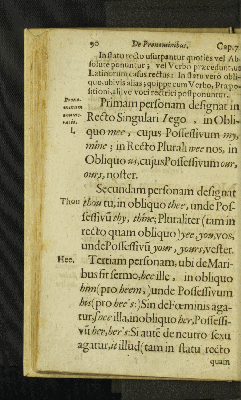 90 De Pronominibus. Cap.7
In statu recto usurpantur quoties vel Ab-
solutè ponuntur; vel Verbo præcedunt, ut
Latinorum casus rectus: In statu verò obli-
quo, ubivis aliàs; quippe cum Verbo, Præpo-
sitioni, alive voci rectrici postponuntur.
Primam personam designat in
Recto Singulari I ego, in Obli-
I. quo mee; cujus Possessivum my,
mine; in Recto Plurali wee nos, in
Obliquo us, cujus Possessivum our,
ours, noster.
Secundam personam designat
Thou thou tu, in obliquo thee, unde Pos-
sessivũ thy, thine; Pluraliter (tam in
recto quam obliquo) yee, you, vos,
unde Possessivũ your, yours, vester.
Hee. Tertiam personam, ubi de Mari-
bus fit sermo, hee ille, in obliquo
him (pro heem,) unde Possessivum
his (pro hee's:) Sin de Fœminis aga-
tur, shee illa, in obliquo her, Possessi-
vũ her, her's: Si autẽ de neutro sexu
agatur, it illud (tam in statu recto
quam